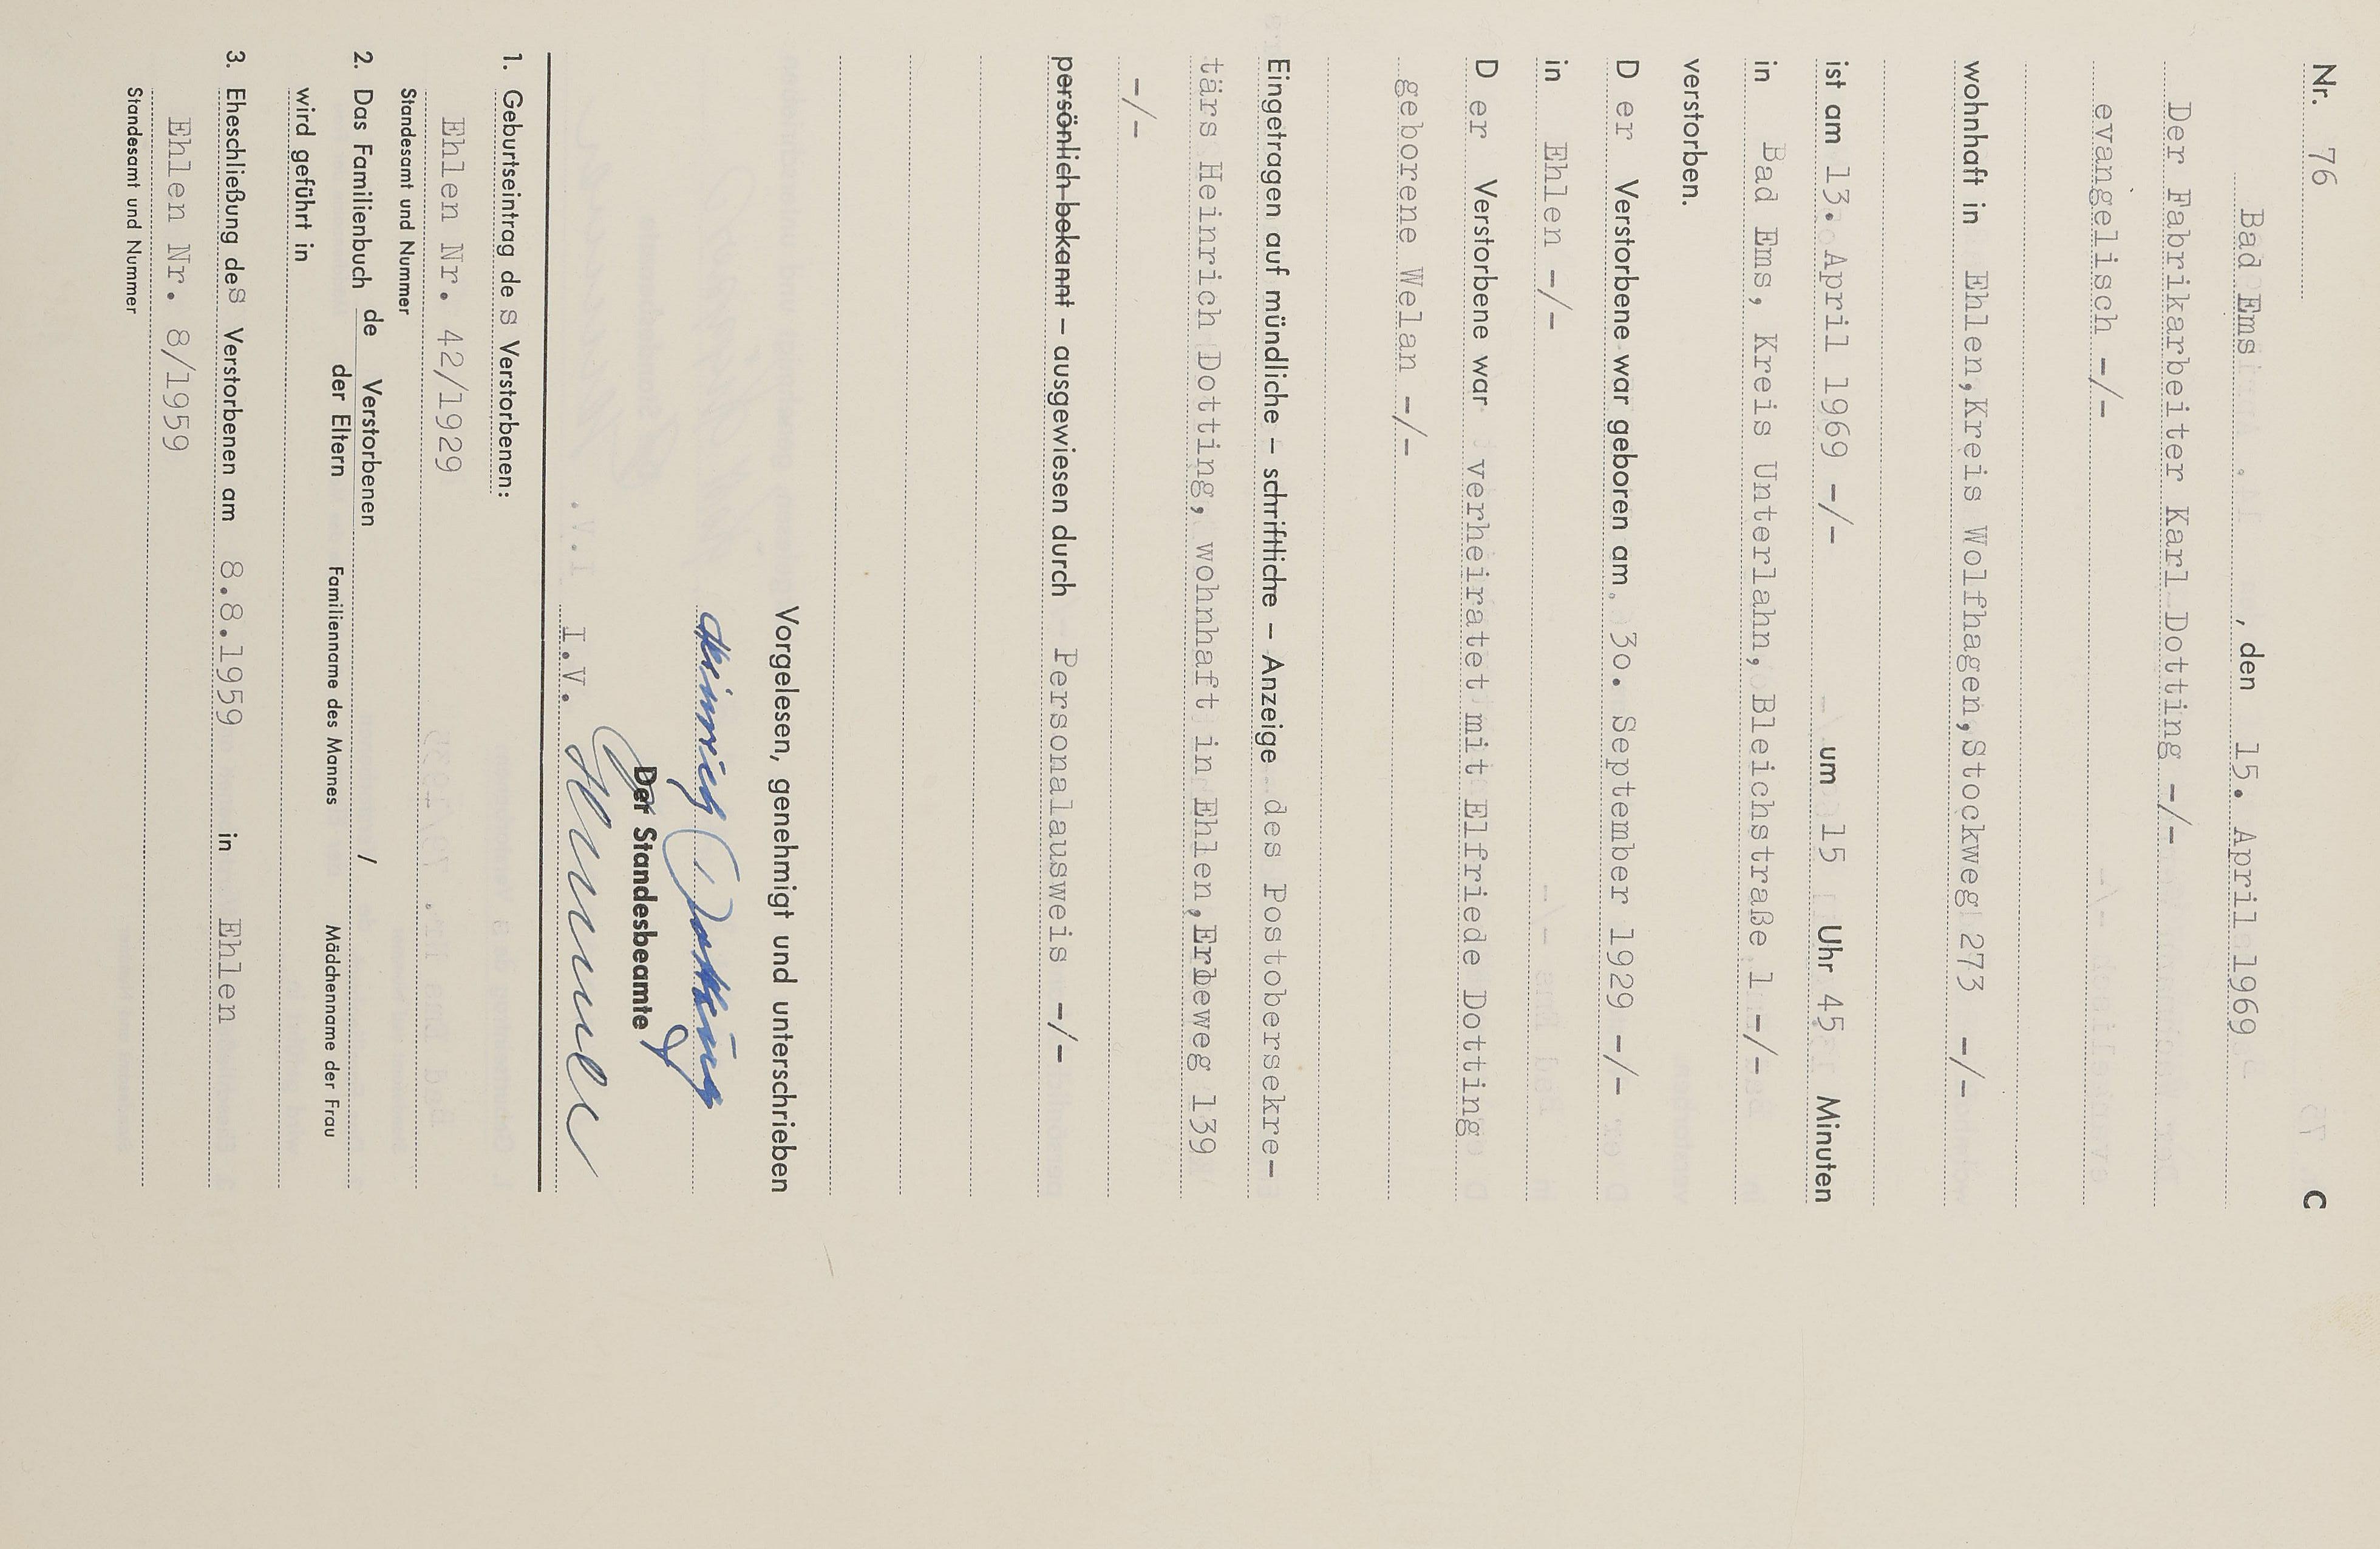 Nr. 76 C
Bad Ems, den 15. April 1969
Der Fabrikarbeiter Karl Dotting -/-
evangelisch -/-
wohnhaft in Ehlen, Kreis Wolfhagen, Stockweg 273 -/-
ist am 13. April 1969 -/- um 15 Uhr 45 Minuten
in Bad Ems, Kreis Unterlahn, Bleichstraße 1 -/-
verstorben.
D er Verstorbene war geboren am 30. September 1929 -/-
in Ehlen -/-
D er Verstorbene war verheiratet mit Elfriede Dotting
geborene Welan -/-
Eingetragen auf mündliche – schriftliche – Anzeige des Postobersekre-
tärs Heinrich Dotting, wohnhaft in Ehlen, Erleweg 139
-/-
persönlich bekannt – ausgewiesen durch Personalausweis -/-
Vorgelesen, genehmigt und unterschrieben
Heinrich Dotting
Der Standesbeamte
I.V.
1. Geburtseintrag des Verstorbenen:
Ehlen Nr. 42/1929
Standesamt und Nummer
2. Das Familienbuch de Verstorbenen /
der Eltern Familienname des Mannes Mädchenname der Frau
wird geführt in
3. Eheschließung des Verstorbenen am 8.8.1959 in Ehlen
Ehlen Nr. 8/1959
Standesamt und Nummer